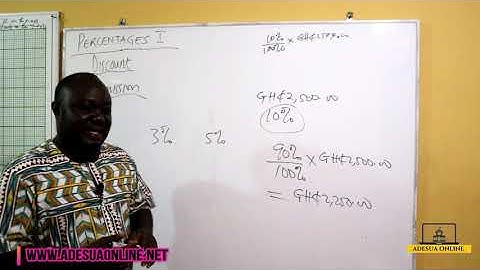 PERCENTAGES I
Discount
10%/100% × GH¢2,500.00
GH¢2,500.00
10%
3% 5%
90%/100% × GH¢2,500.00
= GH¢2,250.00
WWW.ADESUAONLINE.NET
ADESUA ONLINE